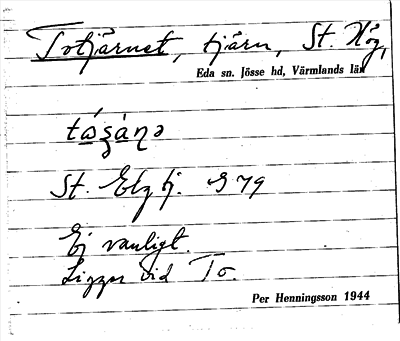 Totjärnet, tjärn, St. Hög,
Eda sn. Jösse hd, Värmlands län
St. Elg tj. 979
Ej vanligt.
Ligger vid To.
Per Henningsson 1944